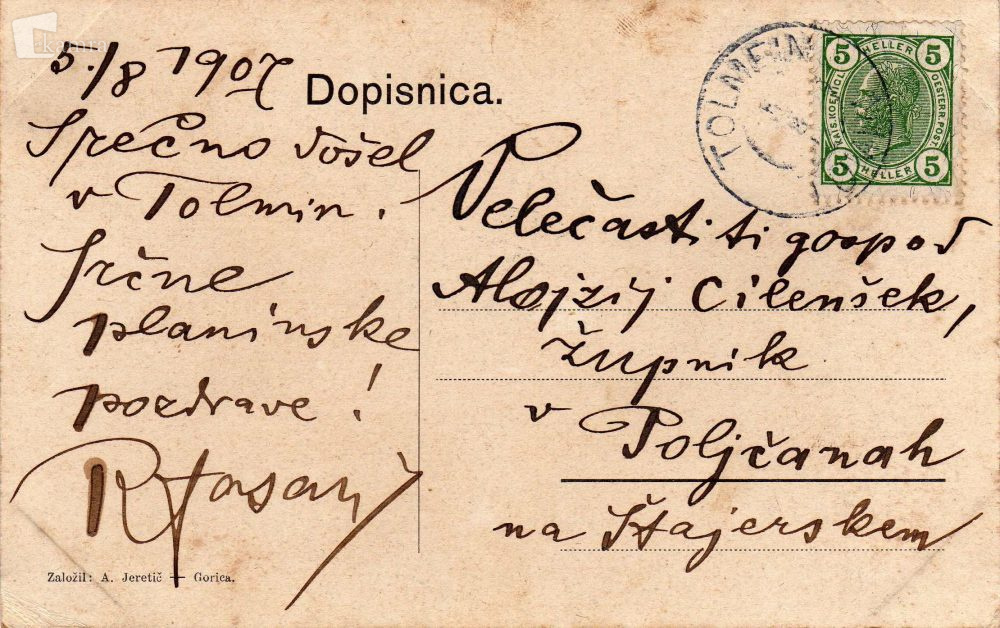 5./8 1907
Dopisnica.
Srečno došel
v Tolmin.
Srčne
planinske
pozdrave!
Velečastiti gospod
Alojzij Cilenšek,
župnik
v Poljčanah
na Štajerskem
Založil: A. Jeretič — Gorica.
TOLMEIN
5 HELLER 5
KAIS. KOENIGL.
OESTERR. POST
5 HELLER 5
kamra